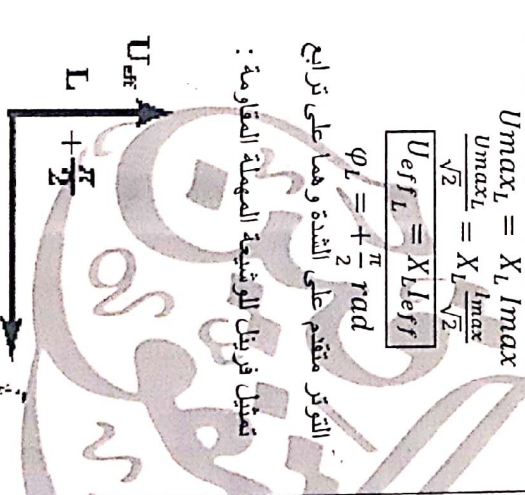 Umax_L = X_L Imax
Umax_L/√2 = X_L Imax/√2
Ueff_L = X_L Ieff
φ_L = +π/2 rad
التوتر متقدم على الشدة وهما على ترابع
تمثيل فرينل للوشيعة المهملة المقاومة :
U_eff L
+π/2